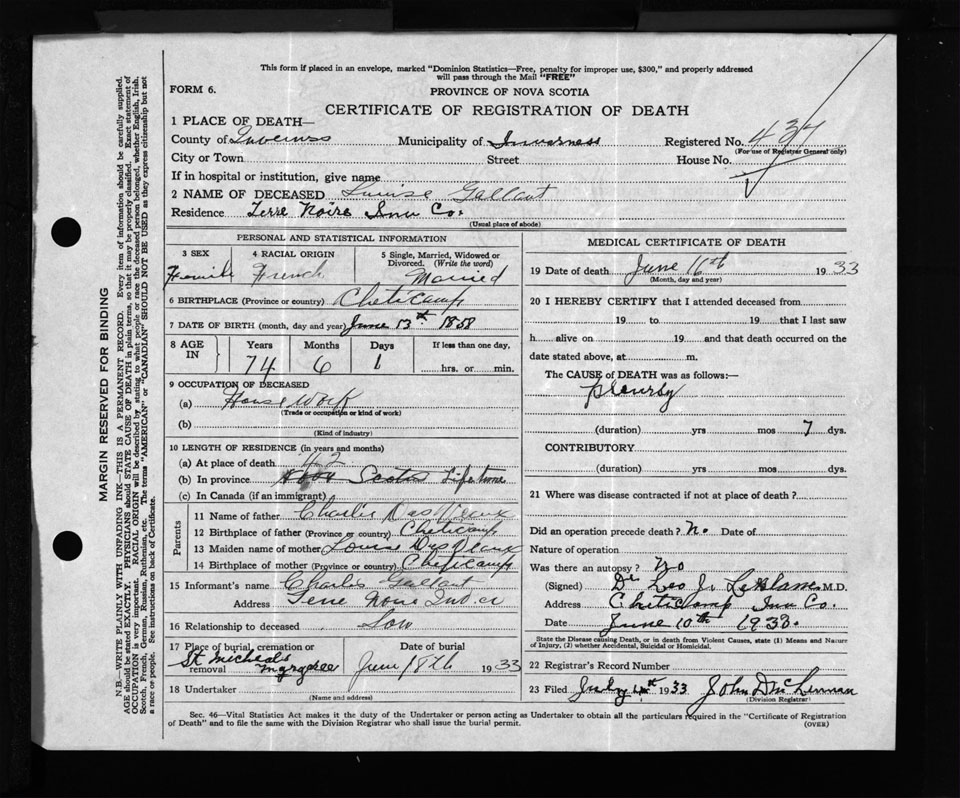 This form if placed in an envelope, marked "Dominion Statistics—Free, penalty for improper use, $300," and properly addressed
will pass through the Mail "FREE"
FORM 6.
PROVINCE OF NOVA SCOTIA
CERTIFICATE OF REGISTRATION OF DEATH
1 PLACE OF DEATH—
County of Inverness Municipality of Inverness Registered No. 437
(For use of Registrar General only)
City or Town Street House No.
If in hospital or institution, give name
2 NAME OF DECEASED Louise Gallant
Residence Terre Noire Inv Co.
(Usual place of abode)
PERSONAL AND STATISTICAL INFORMATION
3 SEX 4 RACIAL ORIGIN 5 Single, Married, Widowed or
Divorced. (Write the word)
Female French Married
6 BIRTHPLACE (Province or country) Cheticamp
7 DATE OF BIRTH (month, day and year) June 13th 1858
8 AGE IN Years Months Days If less than one day,
74 6 1 hrs. or min.
9 OCCUPATION OF DECEASED
(a) House Work
(Trade or occupation or kind of work)
(b)
(Kind of industry)
10 LENGTH OF RESIDENCE (in years and months)
(a) At place of death 42
(b) In province Nova Scotia Life time
(c) In Canada (if an immigrant)
Parents
11 Name of father Charlie
12 Birthplace of father (Province or country) Cheticamp
13 Maiden name of mother Louise
14 Birthplace of mother (Province or country) Cheticamp
15 Informant's name Charlie Gallant
Address Terre Noire Inv. Co
16 Relationship to deceased Son
17 Place of burial, cremation or removal Date of burial
St Micheals Margaree June 18th 1933
18 Undertaker
(Name and address)
MEDICAL CERTIFICATE OF DEATH
19 Date of death June 16th 1933
(Month, day and year)
20 I HEREBY CERTIFY that I attended deceased from
19 to 19 that I last saw
h alive on 19 and that death occurred on the
date stated above, at m.
The CAUSE of DEATH was as follows:—
pleurisy
(duration) yrs mos 7 dys.
CONTRIBUTORY
(duration) yrs mos dys.
21 Where was disease contracted if not at place of death?
Did an operation precede death? No Date of
Nature of operation
Was there an autopsy? No
(Signed) Dr Leo J. LeBlanc M.D.
Address Cheticamp Inv Co.
Date June 10th 1933.
State the Disease causing Death, or in death from Violent Causes, state (1) Means and Nature
of Injury, (2) whether Accidental, Suicidal or Homicidal.
22 Registrar's Record Number
23 Filed July 1933 John D McLennan
(Division Registrar)
Sec. 46—Vital Statistics Act makes it the duty of the Undertaker or person acting as Undertaker to obtain all the particulars required in the "Certificate of Registration
of Death" and to file the same with the Division Registrar who shall issue the burial permit.
(OVER)
MARGIN RESERVED FOR BINDING
N.B.—WRITE PLAINLY WITH UNFADING INK—THIS IS A PERMANENT RECORD. Every item of information should be carefully supplied.
AGE should be stated EXACTLY. PHYSICIANS should STATE CAUSE OF DEATH in plain terms, so that it may be properly classified. Exact statement of
OCCUPATION is very important. RACIAL ORIGIN will be described by stating to what people or race the deceased person belonged, whether English, Irish,
Scotch, French, German, Russian, Ruthenian, etc. The terms "AMERICAN" or "CANADIAN" SHOULD NOT BE USED as they express citizenship but not
a race or people. See instructions on back of Certificate.